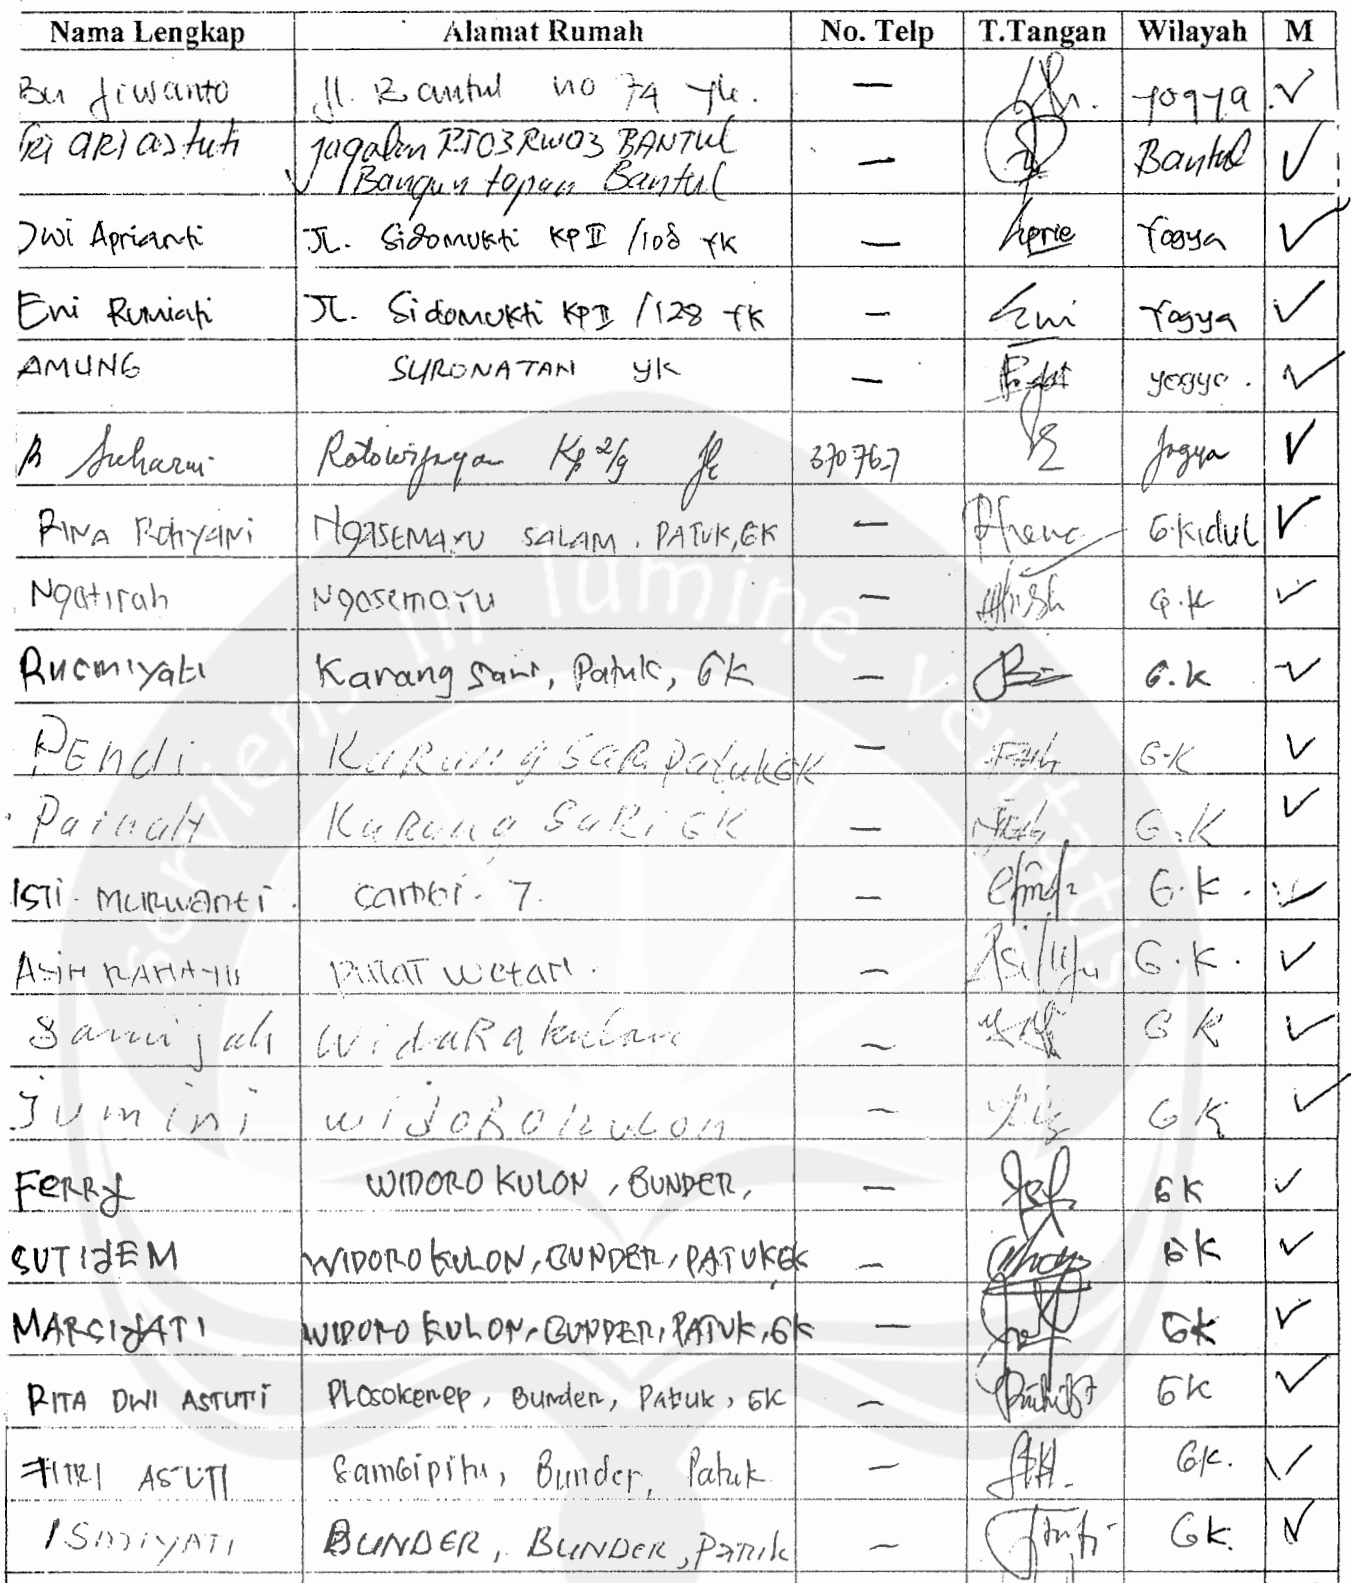 Nama Lengkap Alamat Rumah No. Telp T.Tangan Wilayah M
Bu Jiwanto Jl. Bantul no 74 Yk. — yogya ✓
Tri ARI astuti Jagalan RT03RW03 BANTUL — Bantul ✓
Bangun tapan Bantul
Dwi Aprianti JL. Sidomukti KP II /108 YK — Aprie Yogya ✓
Eni Rumiati JL. Sidomukti KP II /128 YK — Eni Yogya ✓
AMUNG SURONATAN YK — yogya. ✓
Suharni Rotowijayan Kp 2/9 Yk 370767 Jogya ✓
RINA Rohyani NGASEMAYU SALAM, PATUK, GK — G.Kidul ✓
Ngatirah Ngasemayu — G.K ✓
Rucmiyati Karang Sari, Patuk, GK — G.K ✓
PEndi KaRang SaRi Patuk GK — G.K ✓
Painah KaRang SaRi GK — G.K ✓
ISTI. MURWANTI. Sambi. 7. — G.K. ✓
ASIH RAHAYU PUTAT Wetan. — G.K. ✓
Samijah WidaRa kulan — G K ✓
Jumini WiDoRo kulon — G K ✓
FERRY WIDORO KULON, BUNDER, — GK ✓
SUTIJEM WIDORO KULON, BUNDER, PATUK GK — GK ✓
MARSIJATI WIDORO KULON, BUNDER, PATUK, GK — GK ✓
RITA DWI ASTUTI PLosokerep, Bunder, Patuk, GK — GK ✓
FITRI ASTUTI Sambipitu, Bunder, Patuk — GK. ✓
ISMIYATI BUNDER, BUNDER, Patuk — GK. ✓
serviens in lumine veritatis